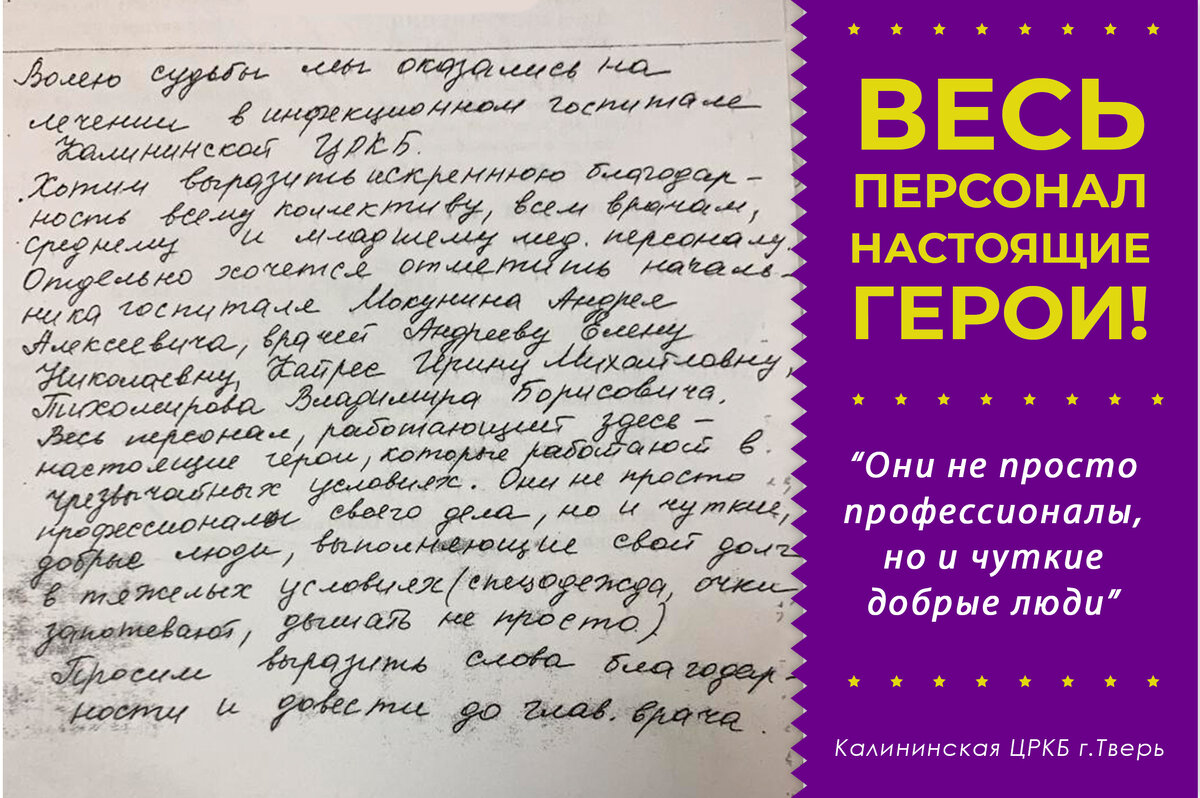 Волею судьбы мы оказались на
лечении в инфекционном госпитале
Калининской ЦРКБ.
Хотим выразить искреннюю благодар-
ность всему коллективу, всем врачам,
среднему и младшему мед. персоналу.
Отдельно хочется отметить началь-
ника госпиталя Мокунина Андрея
Алексеевича, врачей Андрееву Елену
Николаевну, Кайрес Ирину Михайловну,
Тихомирова Владимира Борисовича.
Весь персонал, работающий здесь –
настоящие герои, которые работают в
чрезвычайных условиях. Они не просто
профессионалы своего дела, но и чуткие,
добрые люди, выполняющие свой долг
в тяжелых условиях (спецодежда, очки
запотевают, дышать не просто.)
Просим выразить слова благодар-
ности и довести до глав. врача.
ВЕСЬ
ПЕРСОНАЛ
НАСТОЯЩИЕ
ГЕРОИ!
“Они не просто
профессионалы,
но и чуткие
добрые люди”
Калининская ЦРКБ г.Тверь